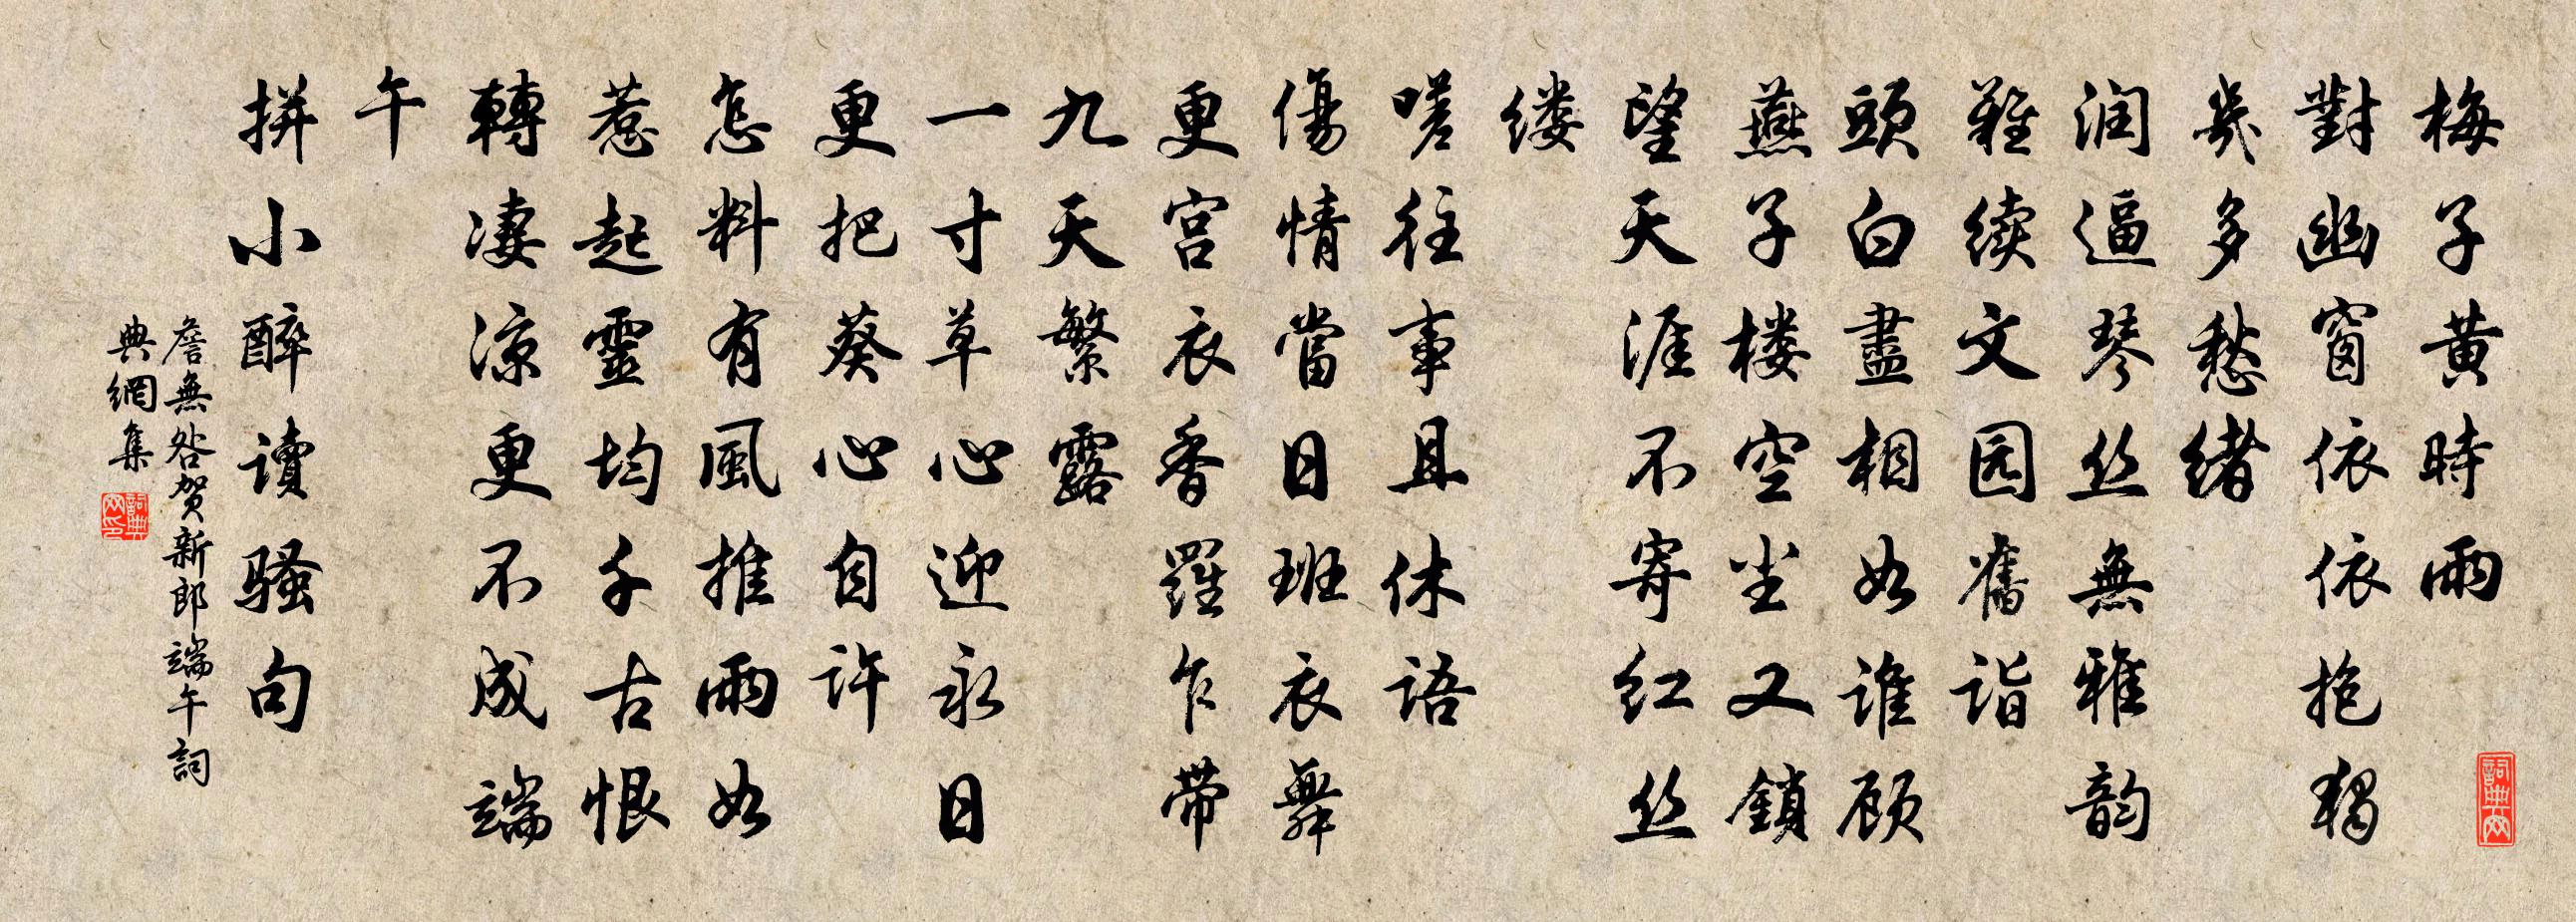 梅子黄時雨
對幽窗依依抱獨
幾多愁緒
润逼琴丝無雅韵
難续文园舊诣
頭白盡相如谁顾
燕子楼空尘又鎖
望天涯不寄红丝
缕
嗟往事且休语
傷情當日班衣舞
更宫衣香羅乍带
九天繁露
一寸草心迎永日
更把葵心自许
怎料有風推雨如
惹起靈均千古恨
轉凄涼更不成端
午
拼小醉读骚句
詹無咎贺新郎端午詞
典網集
詞典网印
詞典网